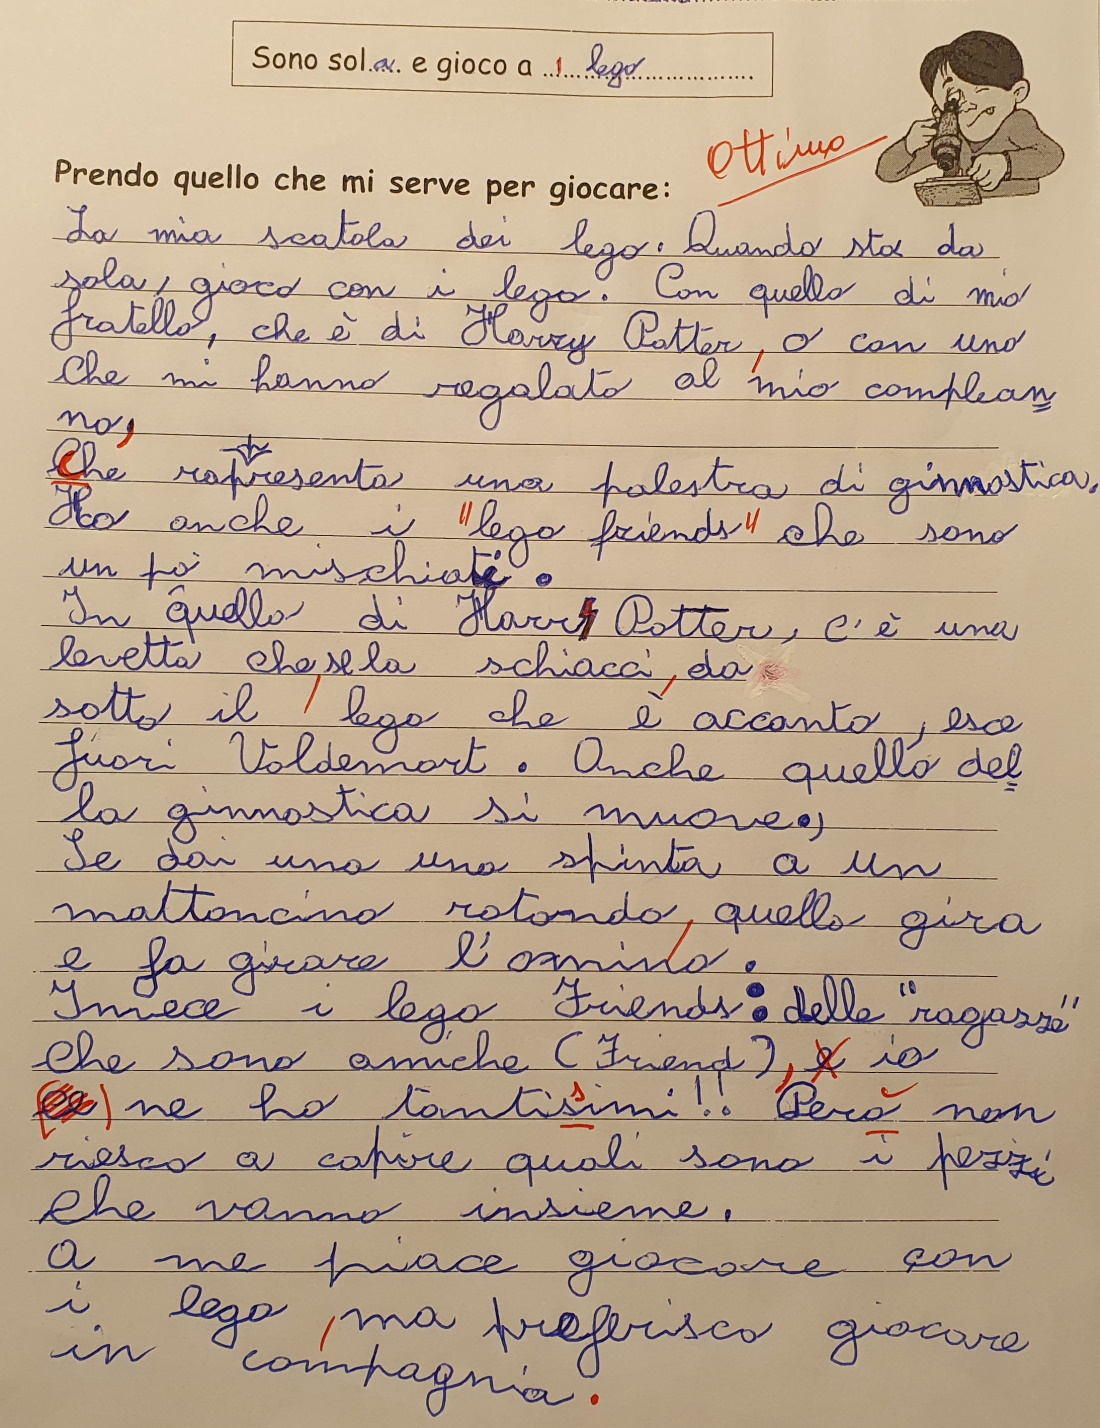 Sono sol.a. e gioco a ..i... lego ....................
Ottimo
Prendo quello che mi serve per giocare:
La mia scatola dei lego. Quando sto da
sola, gioco con i lego. Con quello di mio
fratello, che è di Harry Potter, o con uno
che mi hanno regalato al mio complean
no,
che rappresenta una palestra di ginnastica.
Ho anche i "lego friends" che sono
un pò mischiati.
In quello di Harry Potter, c'è una
levetta che, se la schiacci, da
sotto il lego che è accanto, esce
fuori Voldemort. Anche quello del
la ginnastica si muove,
Se dai una una spinta a un
mattoncino rotondo, quello gira
e fa girare l'omino.
Invece i lego Friends: delle "ragazze"
che sono amiche (Friend), e io
ne ho tantissimi!! Però non
riesco a capire quali sono i pezzi
che vanno insieme.
a me piace giocare con
i lego, ma preferisco giocare
in compagnia.